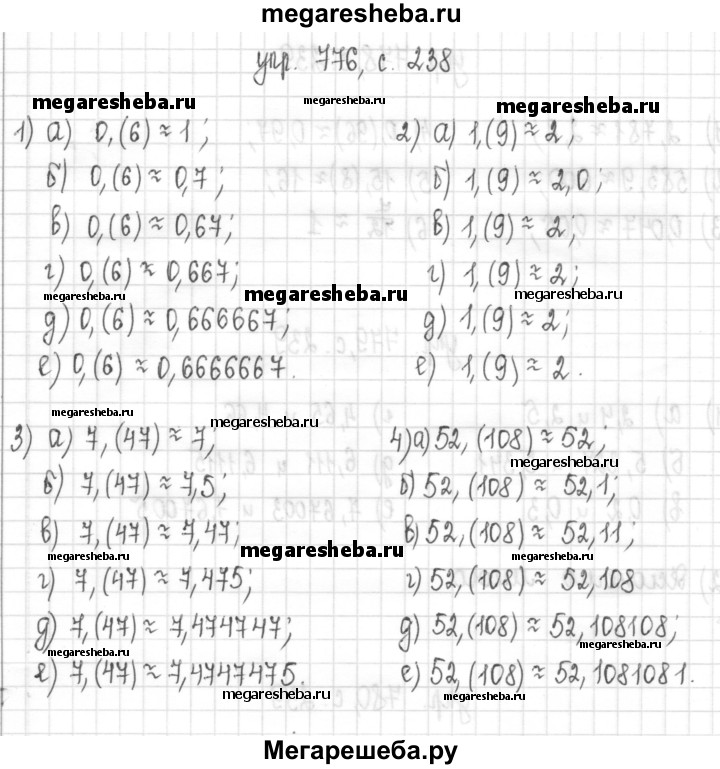 megaresheba.ru
упр. 776, с. 238
megaresheba.ru megaresheba.ru megaresheba.ru
1) а) 0,(6) ≈ 1;
б) 0,(6) ≈ 0,7;
в) 0,(6) ≈ 0,67;
г) 0,(6) ≈ 0,667;
megaresheba.ru
д) 0,(6) ≈ 0,666667;
е) 0,(6) ≈ 0,6666667.
2) а) 1,(9) ≈ 2;
б) 1,(9) ≈ 2,0;
в) 1,(9) ≈ 2;
г) 1,(9) ≈ 2;
megaresheba.ru megaresheba.ru
д) 1,(9) ≈ 2;
е) 1,(9) ≈ 2.
megaresheba.ru
3) а) 7,(47) ≈ 7;
megaresheba.ru
б) 7,(47) ≈ 7,5;
в) 7,(47) ≈ 7,47;
megaresheba.ru megaresheba.ru
г) 7,(47) ≈ 7,475;
д) 7,(47) ≈ 7,474747;
megaresheba.ru
е) 7,(47) ≈ 7,4747475.
megaresheba.ru
4) а) 52,(108) ≈ 52;
megaresheba.ru
б) 52,(108) ≈ 52,1;
в) 52,(108) ≈ 52,11;
megaresheba.ru
г) 52,(108) ≈ 52,108
д) 52,(108) ≈ 52,108108;
megaresheba.ru
е) 52,(108) ≈ 52,1081081.
megaresheba.ru
Мегарешеба.ру